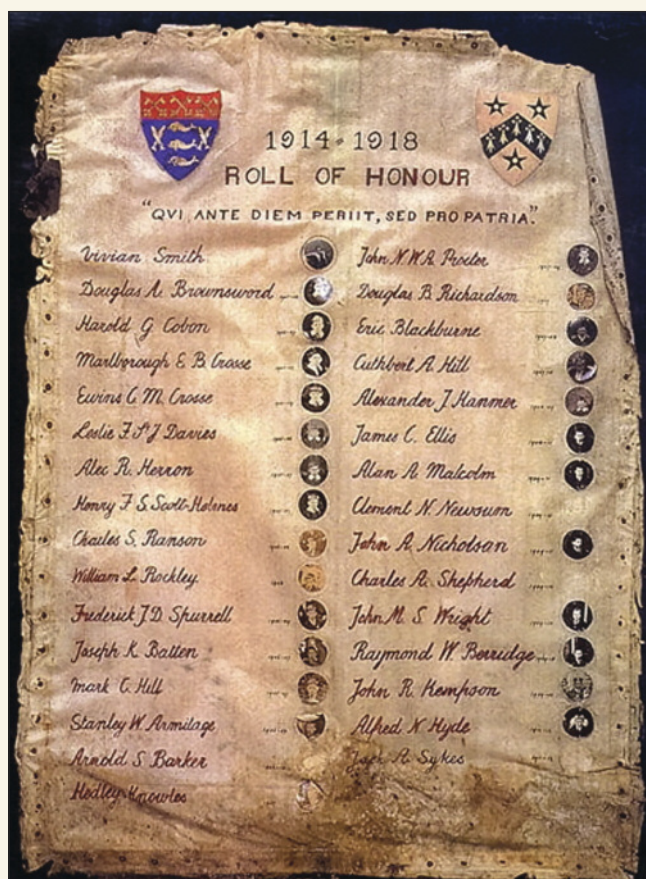 1914-1918
ROLL OF HONOUR
"QVI ANTE DIEM PERIIT, SED PRO PATRIA."
Vivian Smith
Douglas A. Brownsword
Harold G Cobon
Marlborough E B Crosse
Ewins C M Crosse
Leslie F. St J Davies
Alec R. Herron
Henry F S Scott-Holmes
Charles S. Ranson
William L. Rockley
Frederick J D Spurrell
Joseph K Batten
Mark C Hill
Stanley W. Armitage
Arnold S Barker
Hedley Knowles
John N.W.A. Procter
Douglas B Richardson
Eric Blackburne
Cuthbert A Hill
Alexander J Hanmer
James C. Ellis
Alan A. Malcolm
Clement N. Newsum
John A. Nicholson
Charles A. Shepherd
John M. S Wright
Raymond W Berridge
John R. Kempson
Alfred N Hyde
Jack A. Sykes